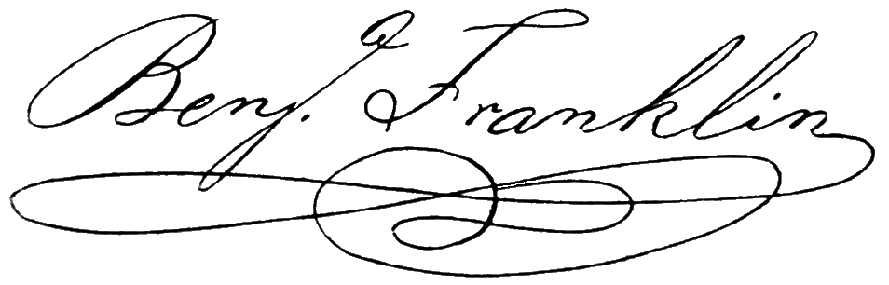 Benj. Franklin